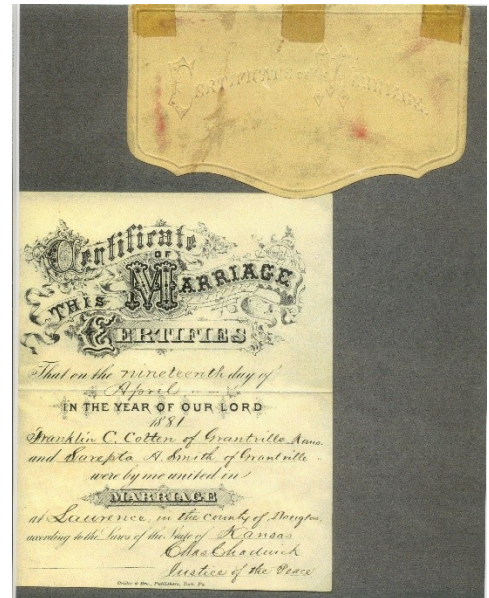 CERTIFICATE OF MARRIAGE.
Certificate
OF
MARRIAGE
THIS
CERTIFIES
That on the nineteenth day of
April
IN THE YEAR OF OUR LORD
1881
Franklin C. Cotten of Grantville Kans.
and Sarepta A. Smith of Grantville
were by me united in
MARRIAGE
at Lawrence, in the county of Douglas,
according to the Laws of the State of Kansas
Chas Chadwick
Justice of the Peace
& Bro., Publishers, York, Pa.